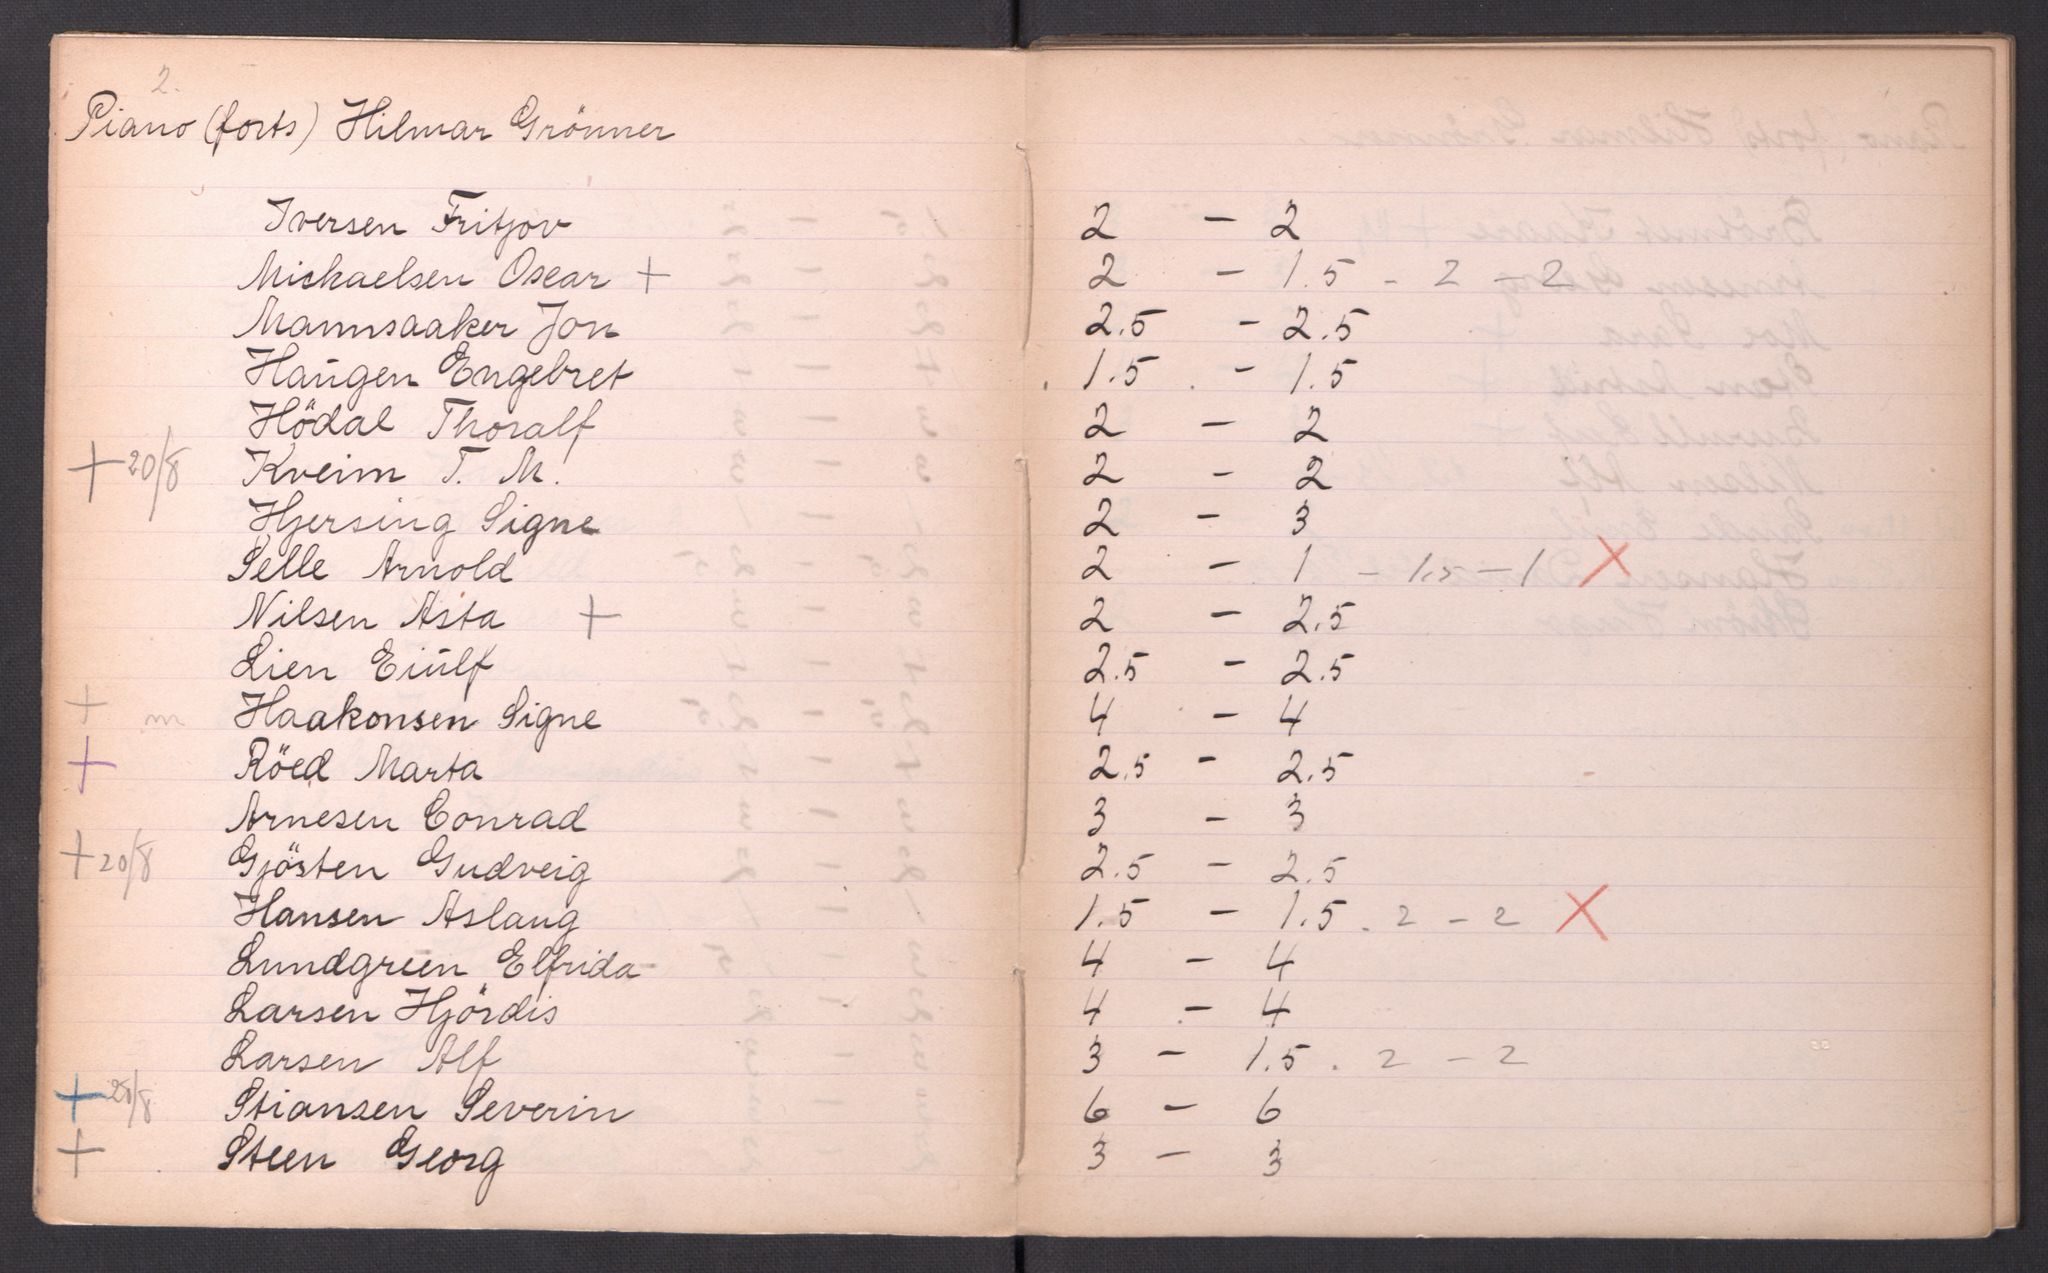 2.
Piano (forts) Hilmar Grönner
Iversen Fritjov 2 - 2
Mickaelsen Oscar + 2 - 1.5 - 2 - 2
Mannsaaker Jon 2.5 - 2.5
Haugen Engebret 1.5 - 1.5
Hödal Thoralf 2 - 2
+ 20/8 Kveim T. M. 2 - 2
Hjersing Signe 2 - 3
Selle Arnold 2 - 1 - 1.5 - 1 X
Nilsen Asta + 2 - 2.5
Lien Eiulf 2.5 - 2.5
+ m Haakonsen Signe 4 - 4
+ Röed Marta 2.5 - 2.5
Arnesen Conrad 3 - 3
+ 20/8 Gjösten Gudveig 2.5 - 2.5
Hansen Aslaug 1.5 - 1.5 . 2 - 2 X
Lundgreen Elfrida 4 - 4
Larsen Hjördis 4 - 4
Larsen Alf 3 - 1.5 . 2 - 2
+ 20/8 Stiansen Severin 6 - 6
+ Steen Georg 3 - 3